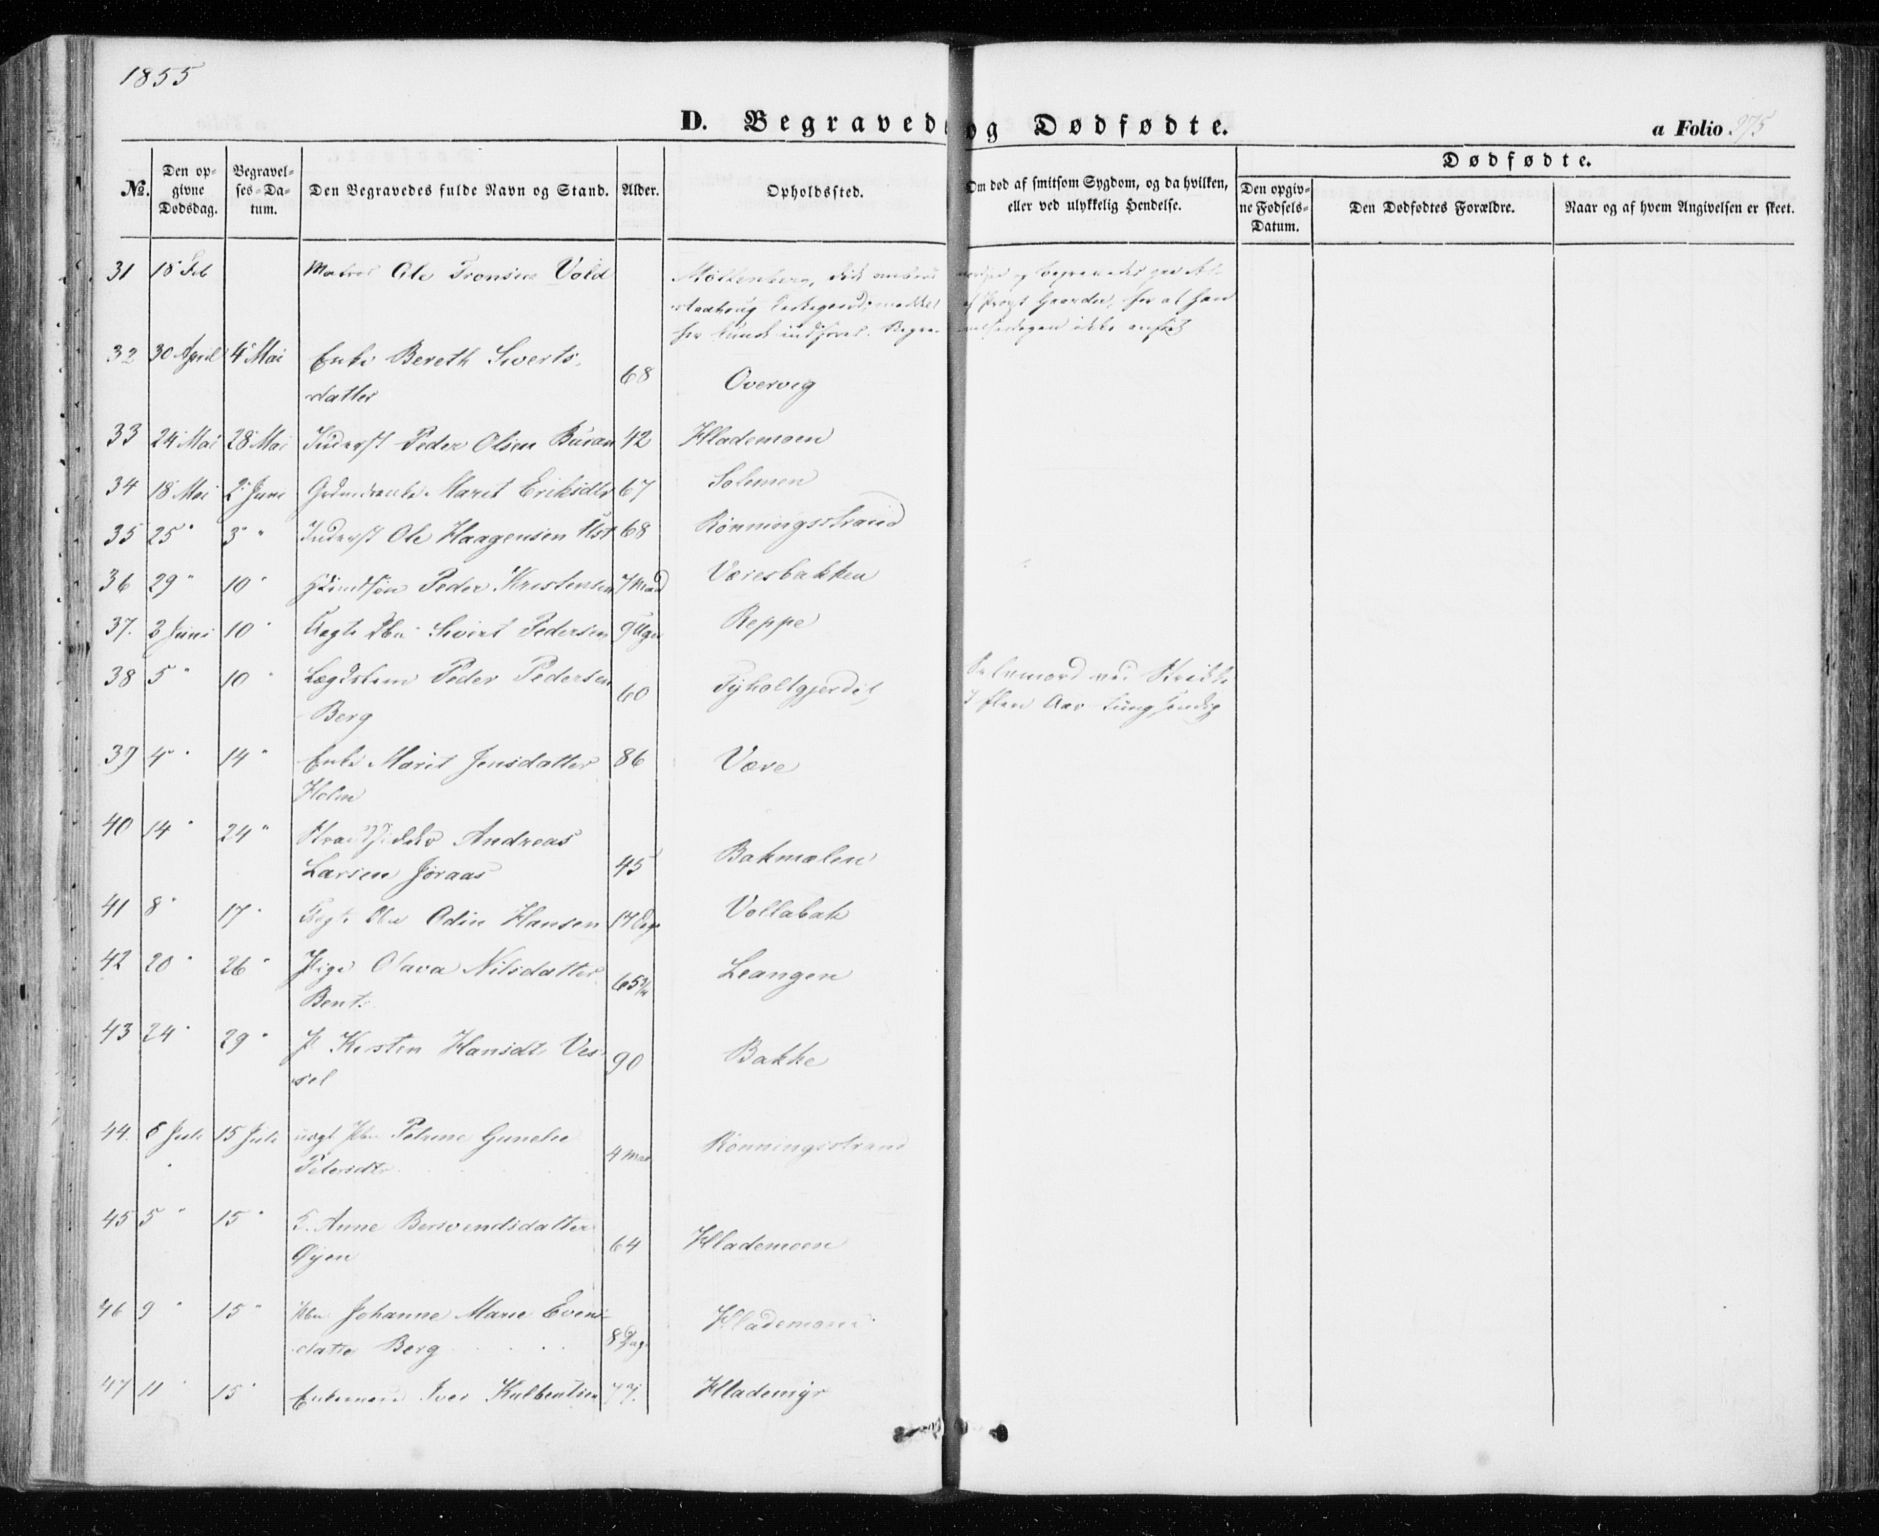 1855
D. Begravede og Dødfødte.
a Folio 375
No.
Den op-
givne
Dødsdag.
Begravel-
ses-Da-
tum.
Den Begravedes fulde Navn og Stand.
Alder.
Opholdssted.
Om død af smitsom Sygdom, og da hvilken,
eller ved ulykkelig Hendelse.
Dødfødte.
Den opgiv-
ne Fødsels-
Datum.
Den Dødfødtes Forældre.
Naar og af hvem Angivelsen er skeet.
31 18 Feb Matros Ole Tronsen Vold
32 30 April 4 Mai Enke Bereth Siverts-
datter 68 Overvig
33 24 Mai 28 Mai Inderst Peder Olsen Buran 42 Hlademoen
34 18 Mai 2 Juni Marit Eriksdtr 67 Solemen
35 25 " 3 " Inderst Ole Haagensen 68 Rønningsstrand
36 29 " 10 " Peder Kristensen 7 Maad Væresbakken
37. 2 Juni 10 " Ægte Bn Sivert Pedersen 9 Uger Reppe
38 5 " 10 " Lægdslem Peder Pedersen
Berg 60 Tyholtgjerdet Selvmord
39 4 " 14 " Enke Marit Jensdatter
Holm 86 Være
40 14 " 24 " Strandsidder Andreas
Larsen Joraas 45 Bakmalen
41 8 " 17 " Ægte Bn Odin Hansen 14 Dage Vollabak
42 20 " 26 " Pige Olava Nilsdatter
65 Leangen
43 24 " 29 " Kirsten Hansdtr Ves-
sel 90 Bakke
44. 6 Juli 15 Juli uægt Pbn Petrine Gunelie
Petersdtr 4 Maa Rønningsstrand
45 5 " 15 " Anne Berwendsdatter
Øyen 64 Hlademoen
46 9 " 15 " Johanne Marie Evens-
datter Berg 8 Dage Hlademoen
47 11 " 15 " Enkemand Iver 77. Hlademyr